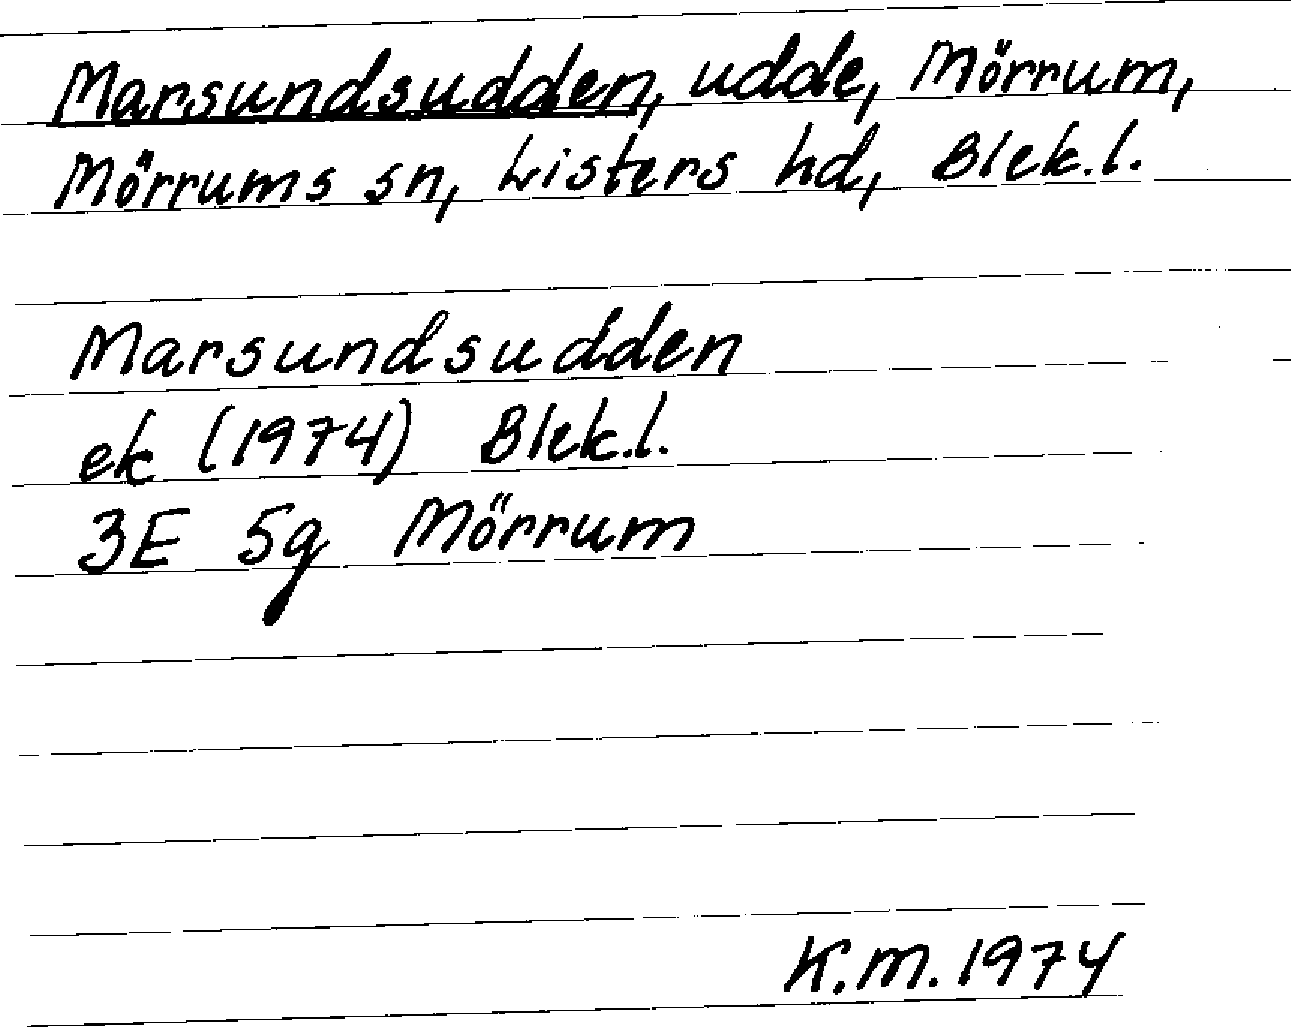 Marsundsudden, udde, Mörrum,
Mörrums sn, Listers hd, Blek.l.
Marsundsudden
ek (1974) Blek.l.
3E 5g Mörrum
K.M. 1974